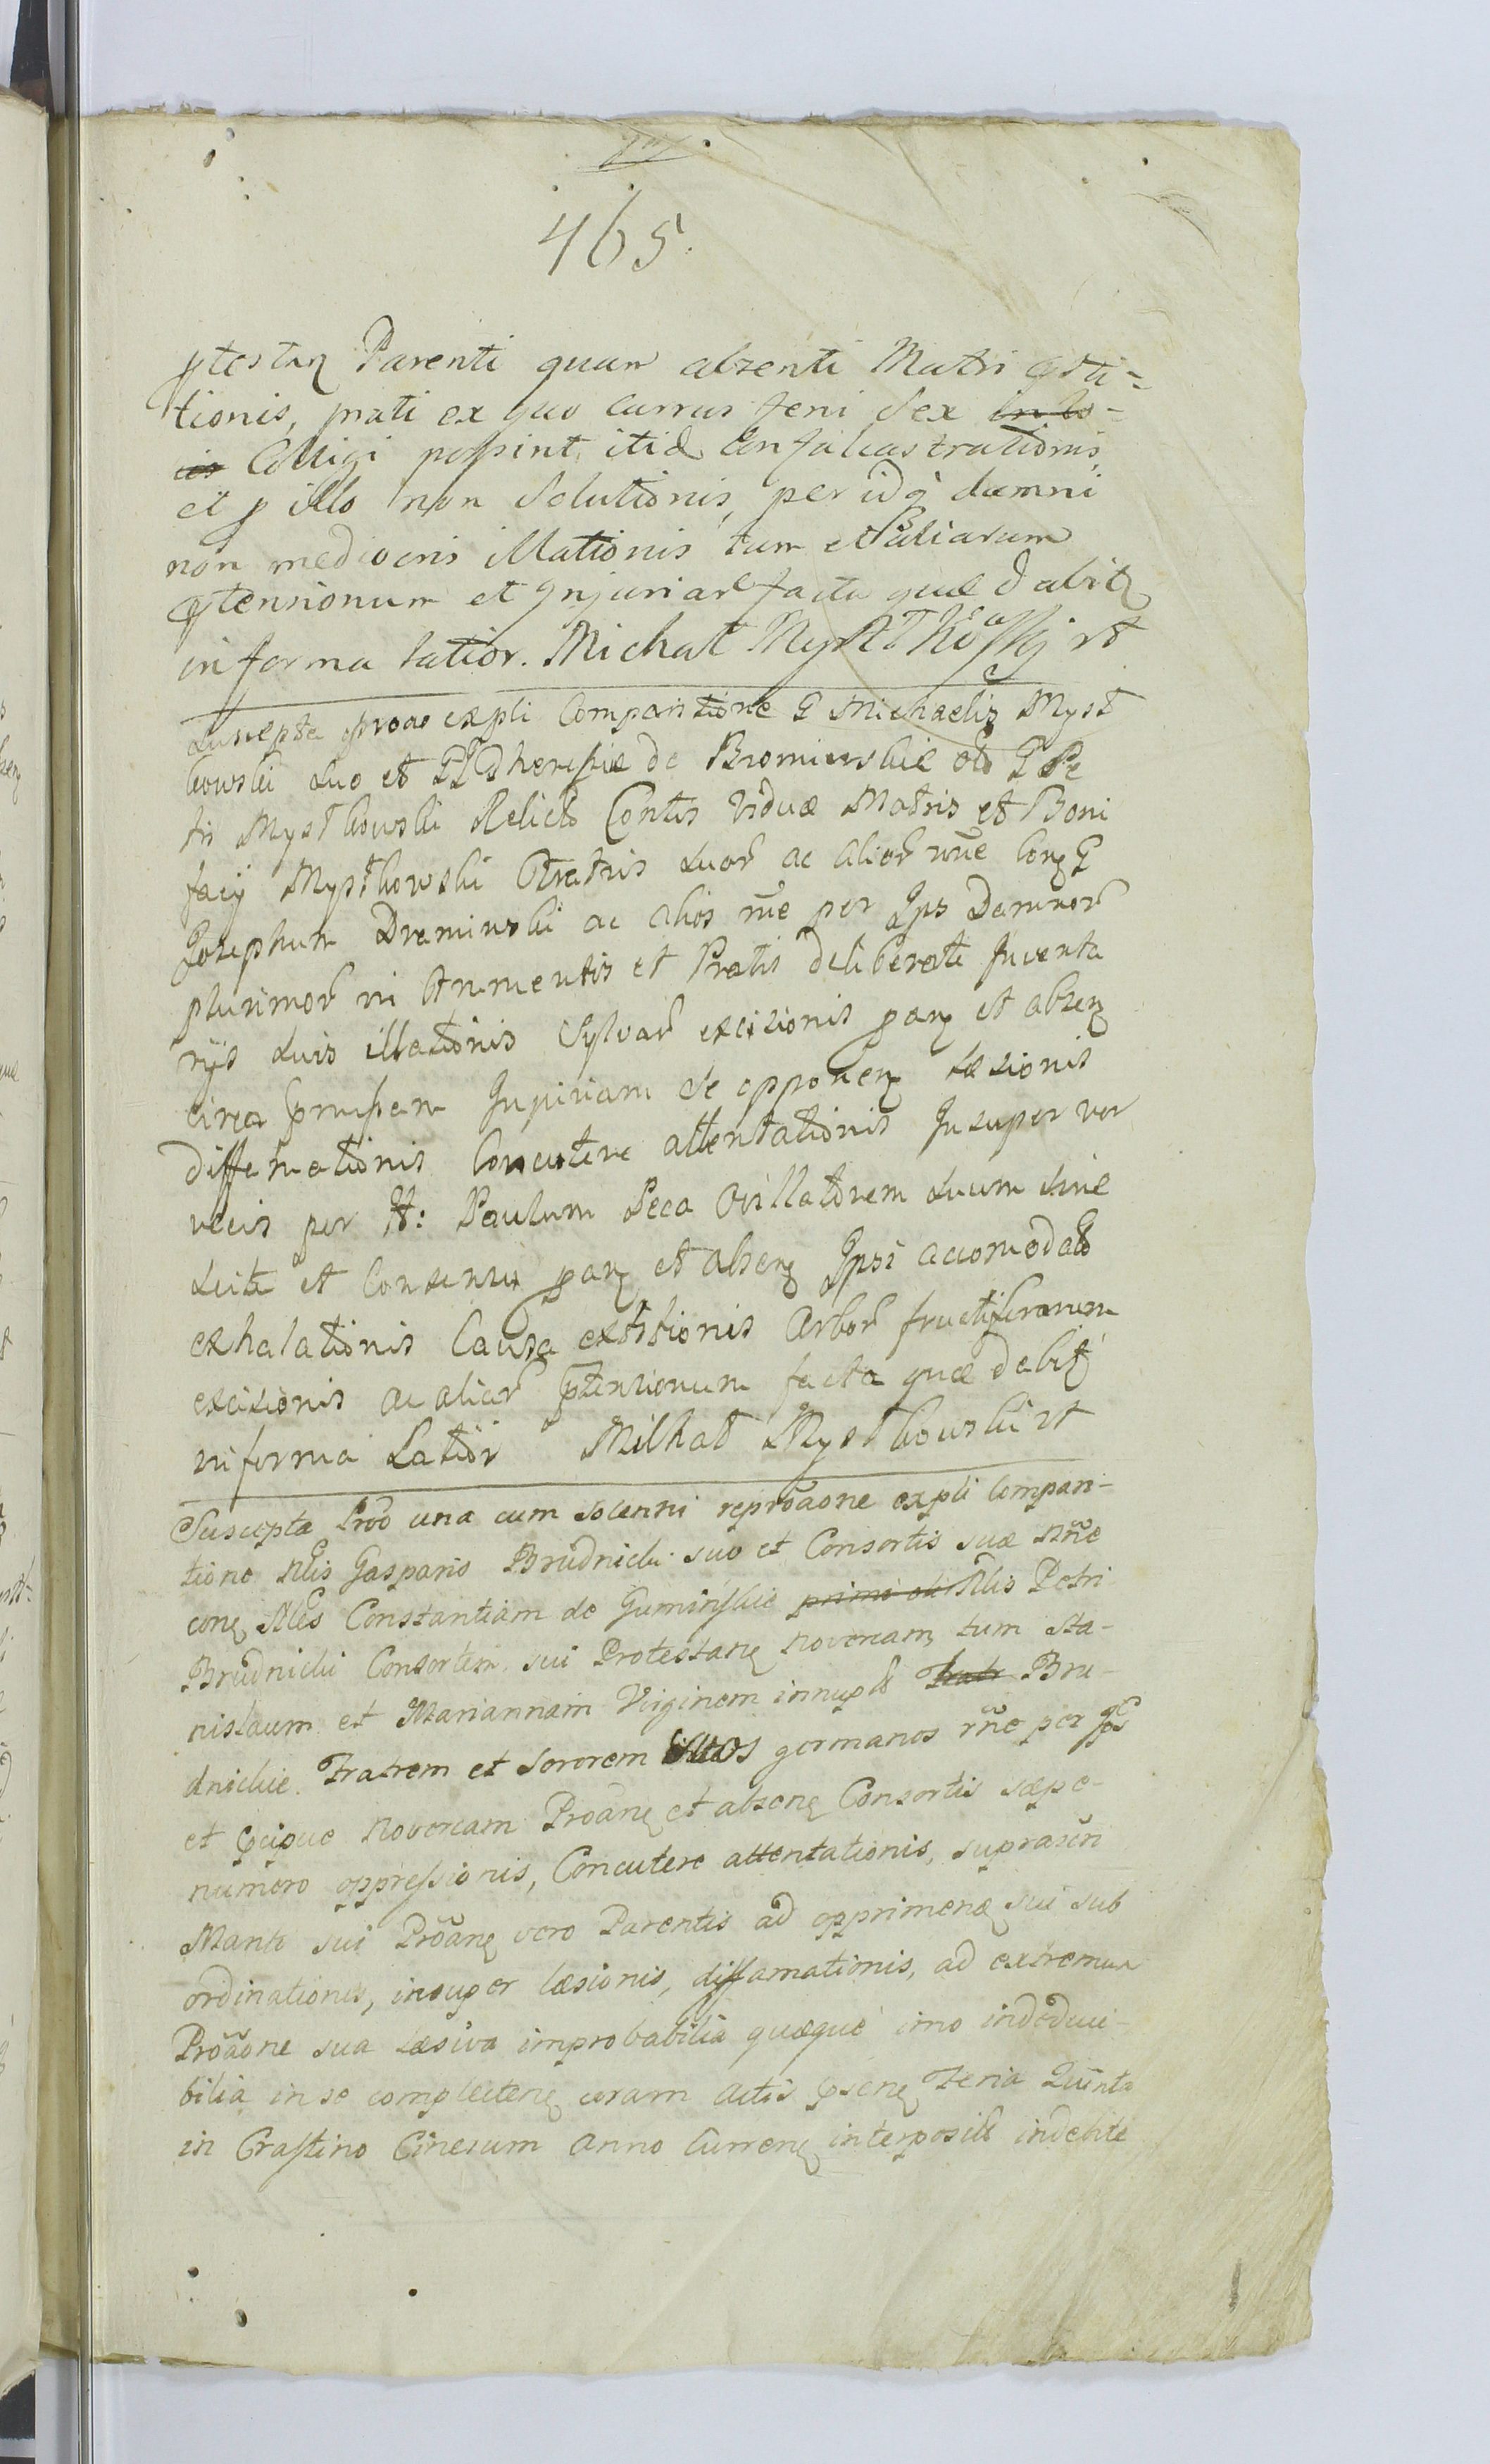 465.
ptestan Parenti quam absenti Matri
tionis, prati ex quo currus feni Sex in lo-
cis Colligi possint, itid Confalcastrationis,
et p illo non Solutionis, per idq damni
non mediocris illationis tum et aliarum
ptensionum et Injuriar facta quae d abit
in forma latior. Michał Mystkowski
Suscepta proao expli Comparitione G Michaelis Myst
kowski suo et de Bromirskie oli G Pe
tri Mystkowski Relicta Contis Viduæ Matris et Boni
facij Mystkowski Fratris suor ac alior nne Con G
Josephum Dreminski ac alios rne per Ips Damnor
plurimor in frumentis et Pratis deliberate Juventa
rijs suis illationis Sylvar excisionis pan et absen
circa Injuriam se opponen Læsionis
diffamationis Concutere attentationis Insuper ver
vecis per H: Paulum Peca Ovillatorem suum sine
scitu et Consensu pan et absen Ipsi accomodato
exhalationis Causa arbor fructiferarum
excisionis ac alior ptensionum facta quæ debit
in forma Latior Michał Mystkowski
Suscepta Prôo una cum solenni reprôaone expli Compari-
tione Nlis Gasparis Brudnicki suo et Consortis suæ nne
con Nles Constantiam de Guminskie primi oli Nlis Petri
Brudnicki Consortem, sui Protestan novercam, tum Sta-
nislaum et Mariannam Virginem innupt Fratr Bru-
dnickie. Fratrem et Sororem suos germanos rne per Ips
et pcipue novercam Prôan et absen Consortis sæpe-
numero oppressionis, Concutere attentationis, suprascri
Manti sui Prôan vero Parentis ad opprimen sui sub
ordinationis, insuper læsionis, diffamationis, ad extremum
Prôaone sua læsiva improbabilia quæque imo indeduci-
bilia in se complecten coram Actis psen Feria Quinta
in Crastino Cinerum Anno Curren interposit indebite